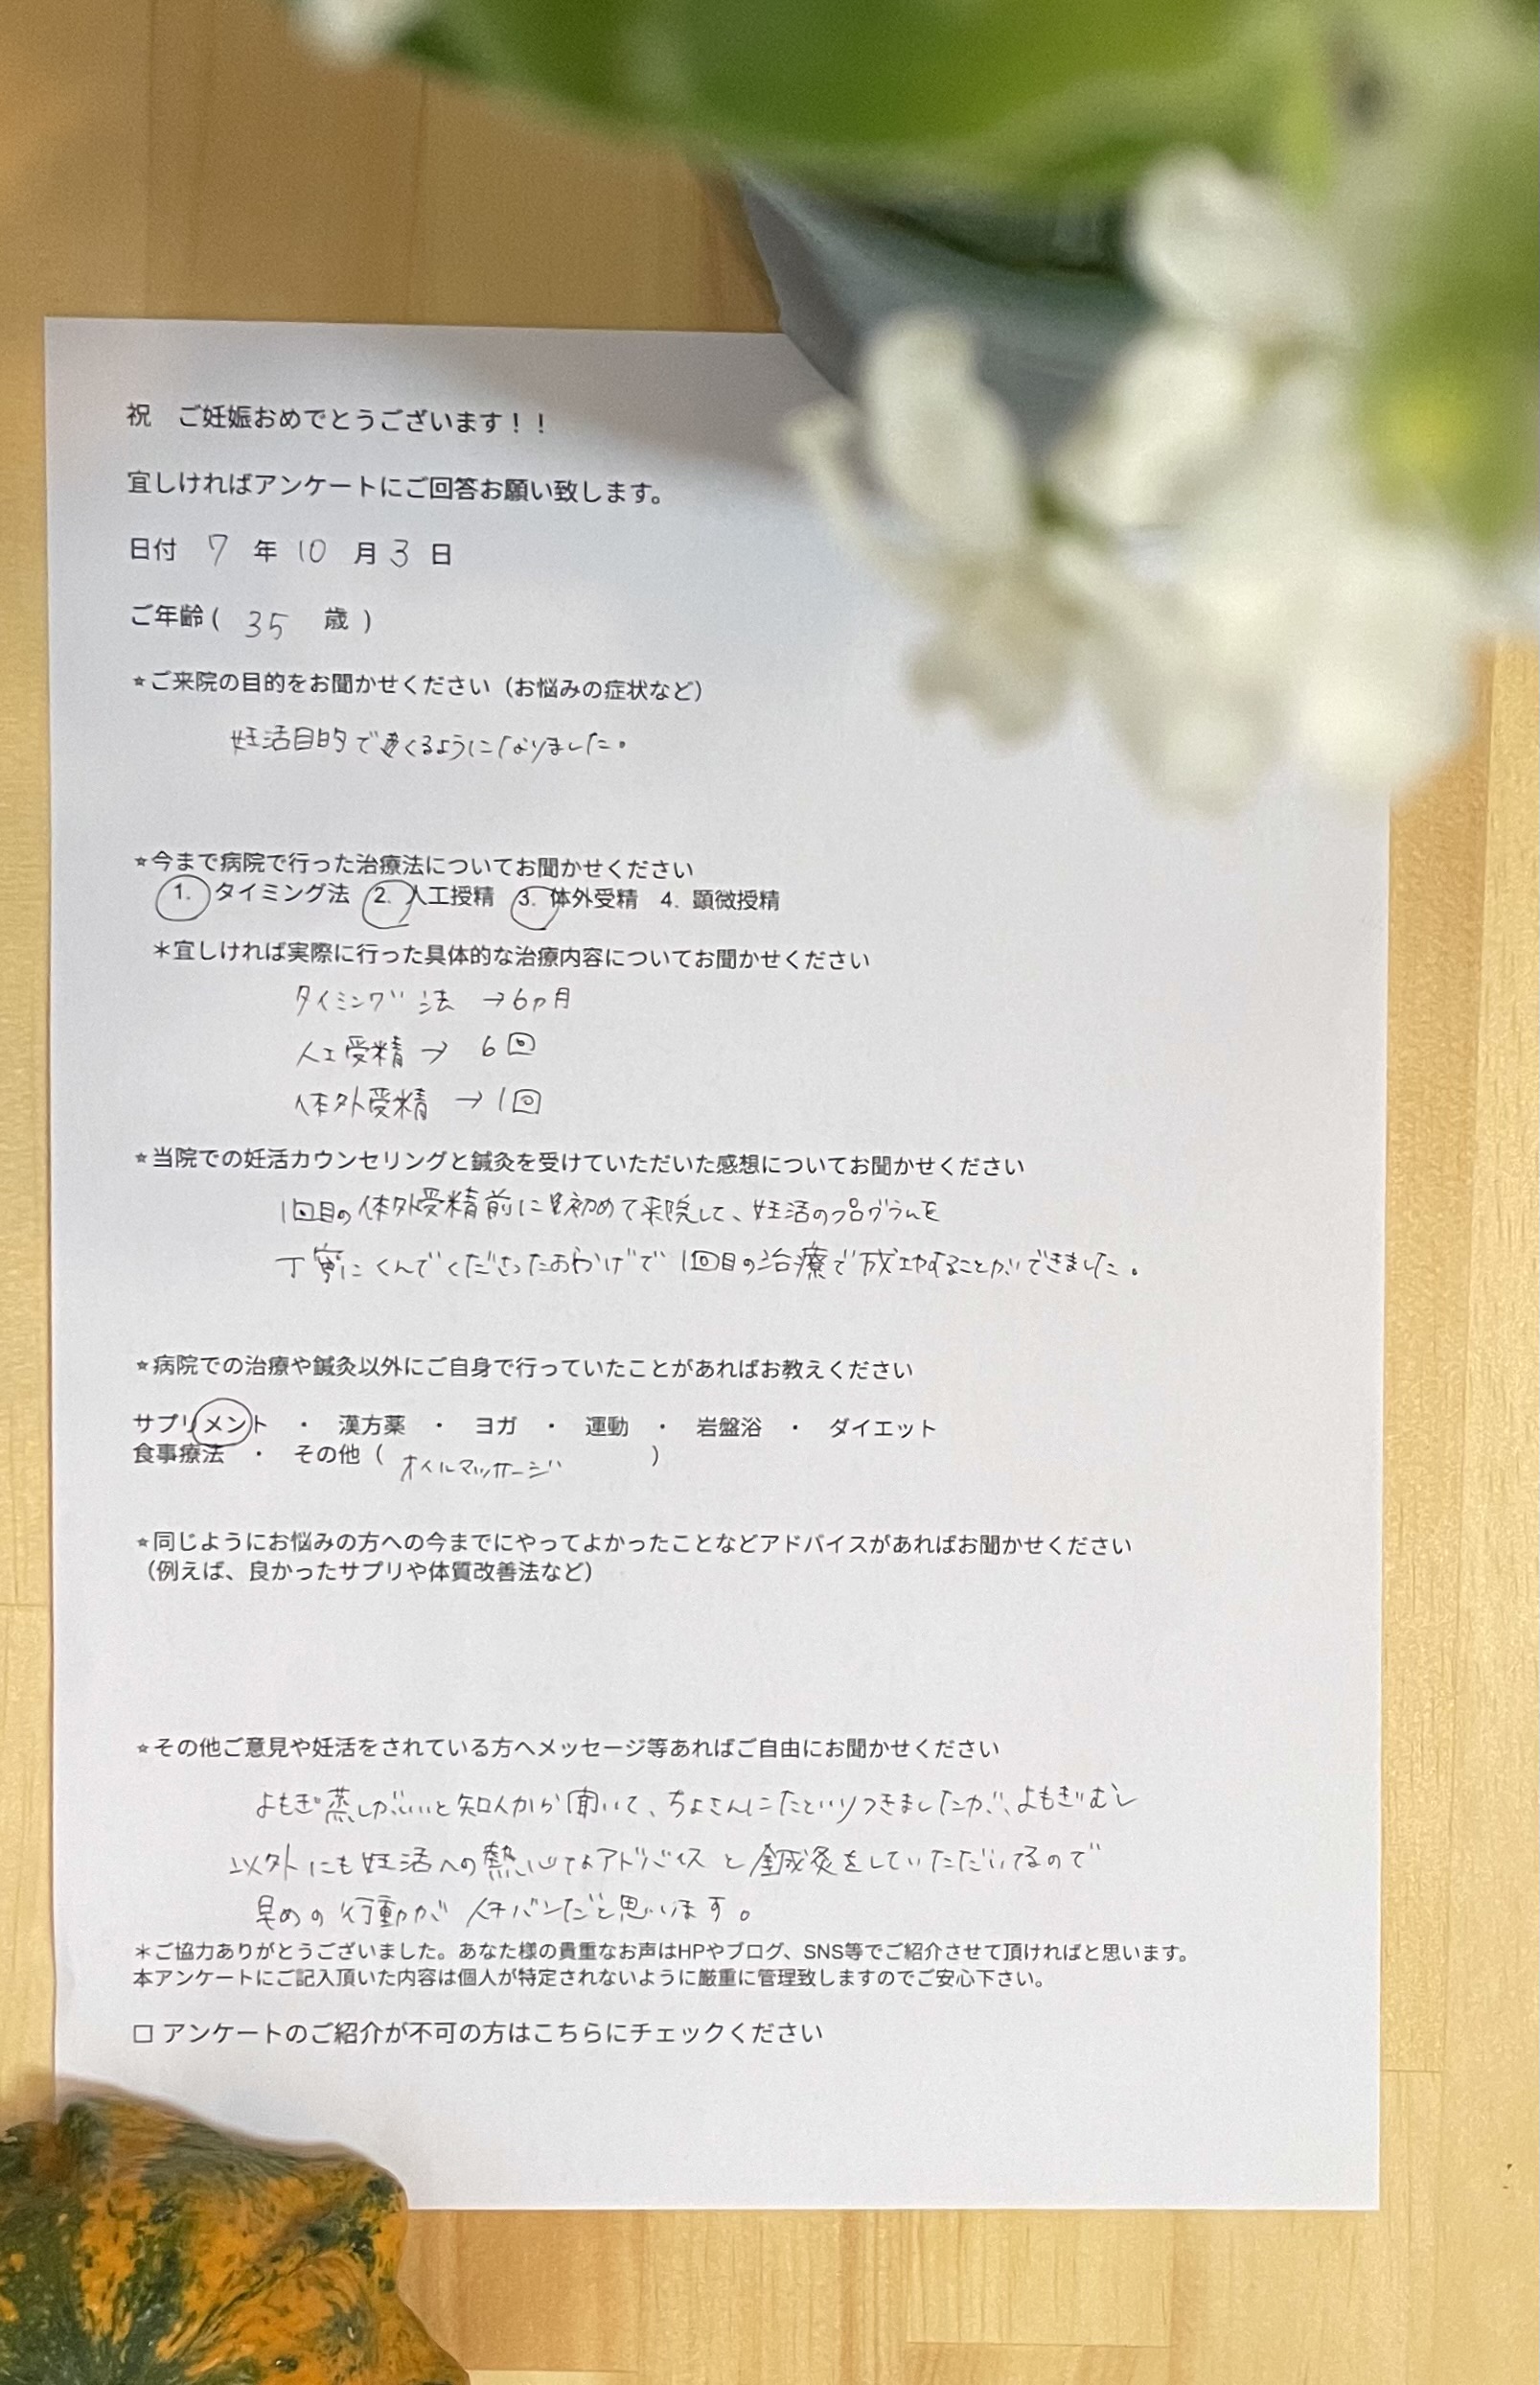 祝　ご妊娠おめでとうございます！！
宜しければアンケートにご回答お願い致します。
日付 7 年 10 月 3 日
ご年齢( 35 歳 )
⭐︎ご来院の目的をお聞かせください（お悩みの症状など）
妊活目的で くるようになりました。
⭐︎今まで病院で行った治療法についてお聞かせください
1. タイミング法 2. 人工授精 3. 体外受精 4. 顕微授精
＊宜しければ実際に行った具体的な治療内容についてお聞かせください
タイミング法 →6ヵ月
人工受精→ 6回
体外受精 →1回
⭐︎当院での妊活カウンセリングと鍼灸を受けていただいた感想についてお聞かせください
1回目の体外受精前に初めて来院して、妊活のプログラムを
丁寧にくんでくださったおかげで 1回目の治療で成功することができました。
⭐︎病院での治療や鍼灸以外にご自身で行っていたことがあればお教えください
サプリメント ・ 漢方薬 ・ ヨガ ・ 運動 ・ 岩盤浴 ・ ダイエット
食事療法 ・ その他 ( オイルマッサージ )
⭐︎同じようにお悩みの方への今までにやってよかったことなどアドバイスがあればお聞かせください
（例えば、良かったサプリや体質改善法など）
⭐︎その他ご意見や妊活をされている方へメッセージ等あればご自由にお聞かせください
よもぎ蒸しがいいと知人から聞いて、ちょさんにたどりつきましたが、よもぎむし
以外にも妊活への熱心なアドバイスと鍼灸をしていただいてるので
早めの行動がイチバンだと思います。
＊ご協力ありがとうございました。あなた様の貴重なお声はHPやブログ、SNS等でご紹介させて頂ければと思います。
本アンケートにご記入頂いた内容は個人が特定されないように厳重に管理致しますのでご安心下さい。
□ アンケートのご紹介が不可の方はこちらにチェックください